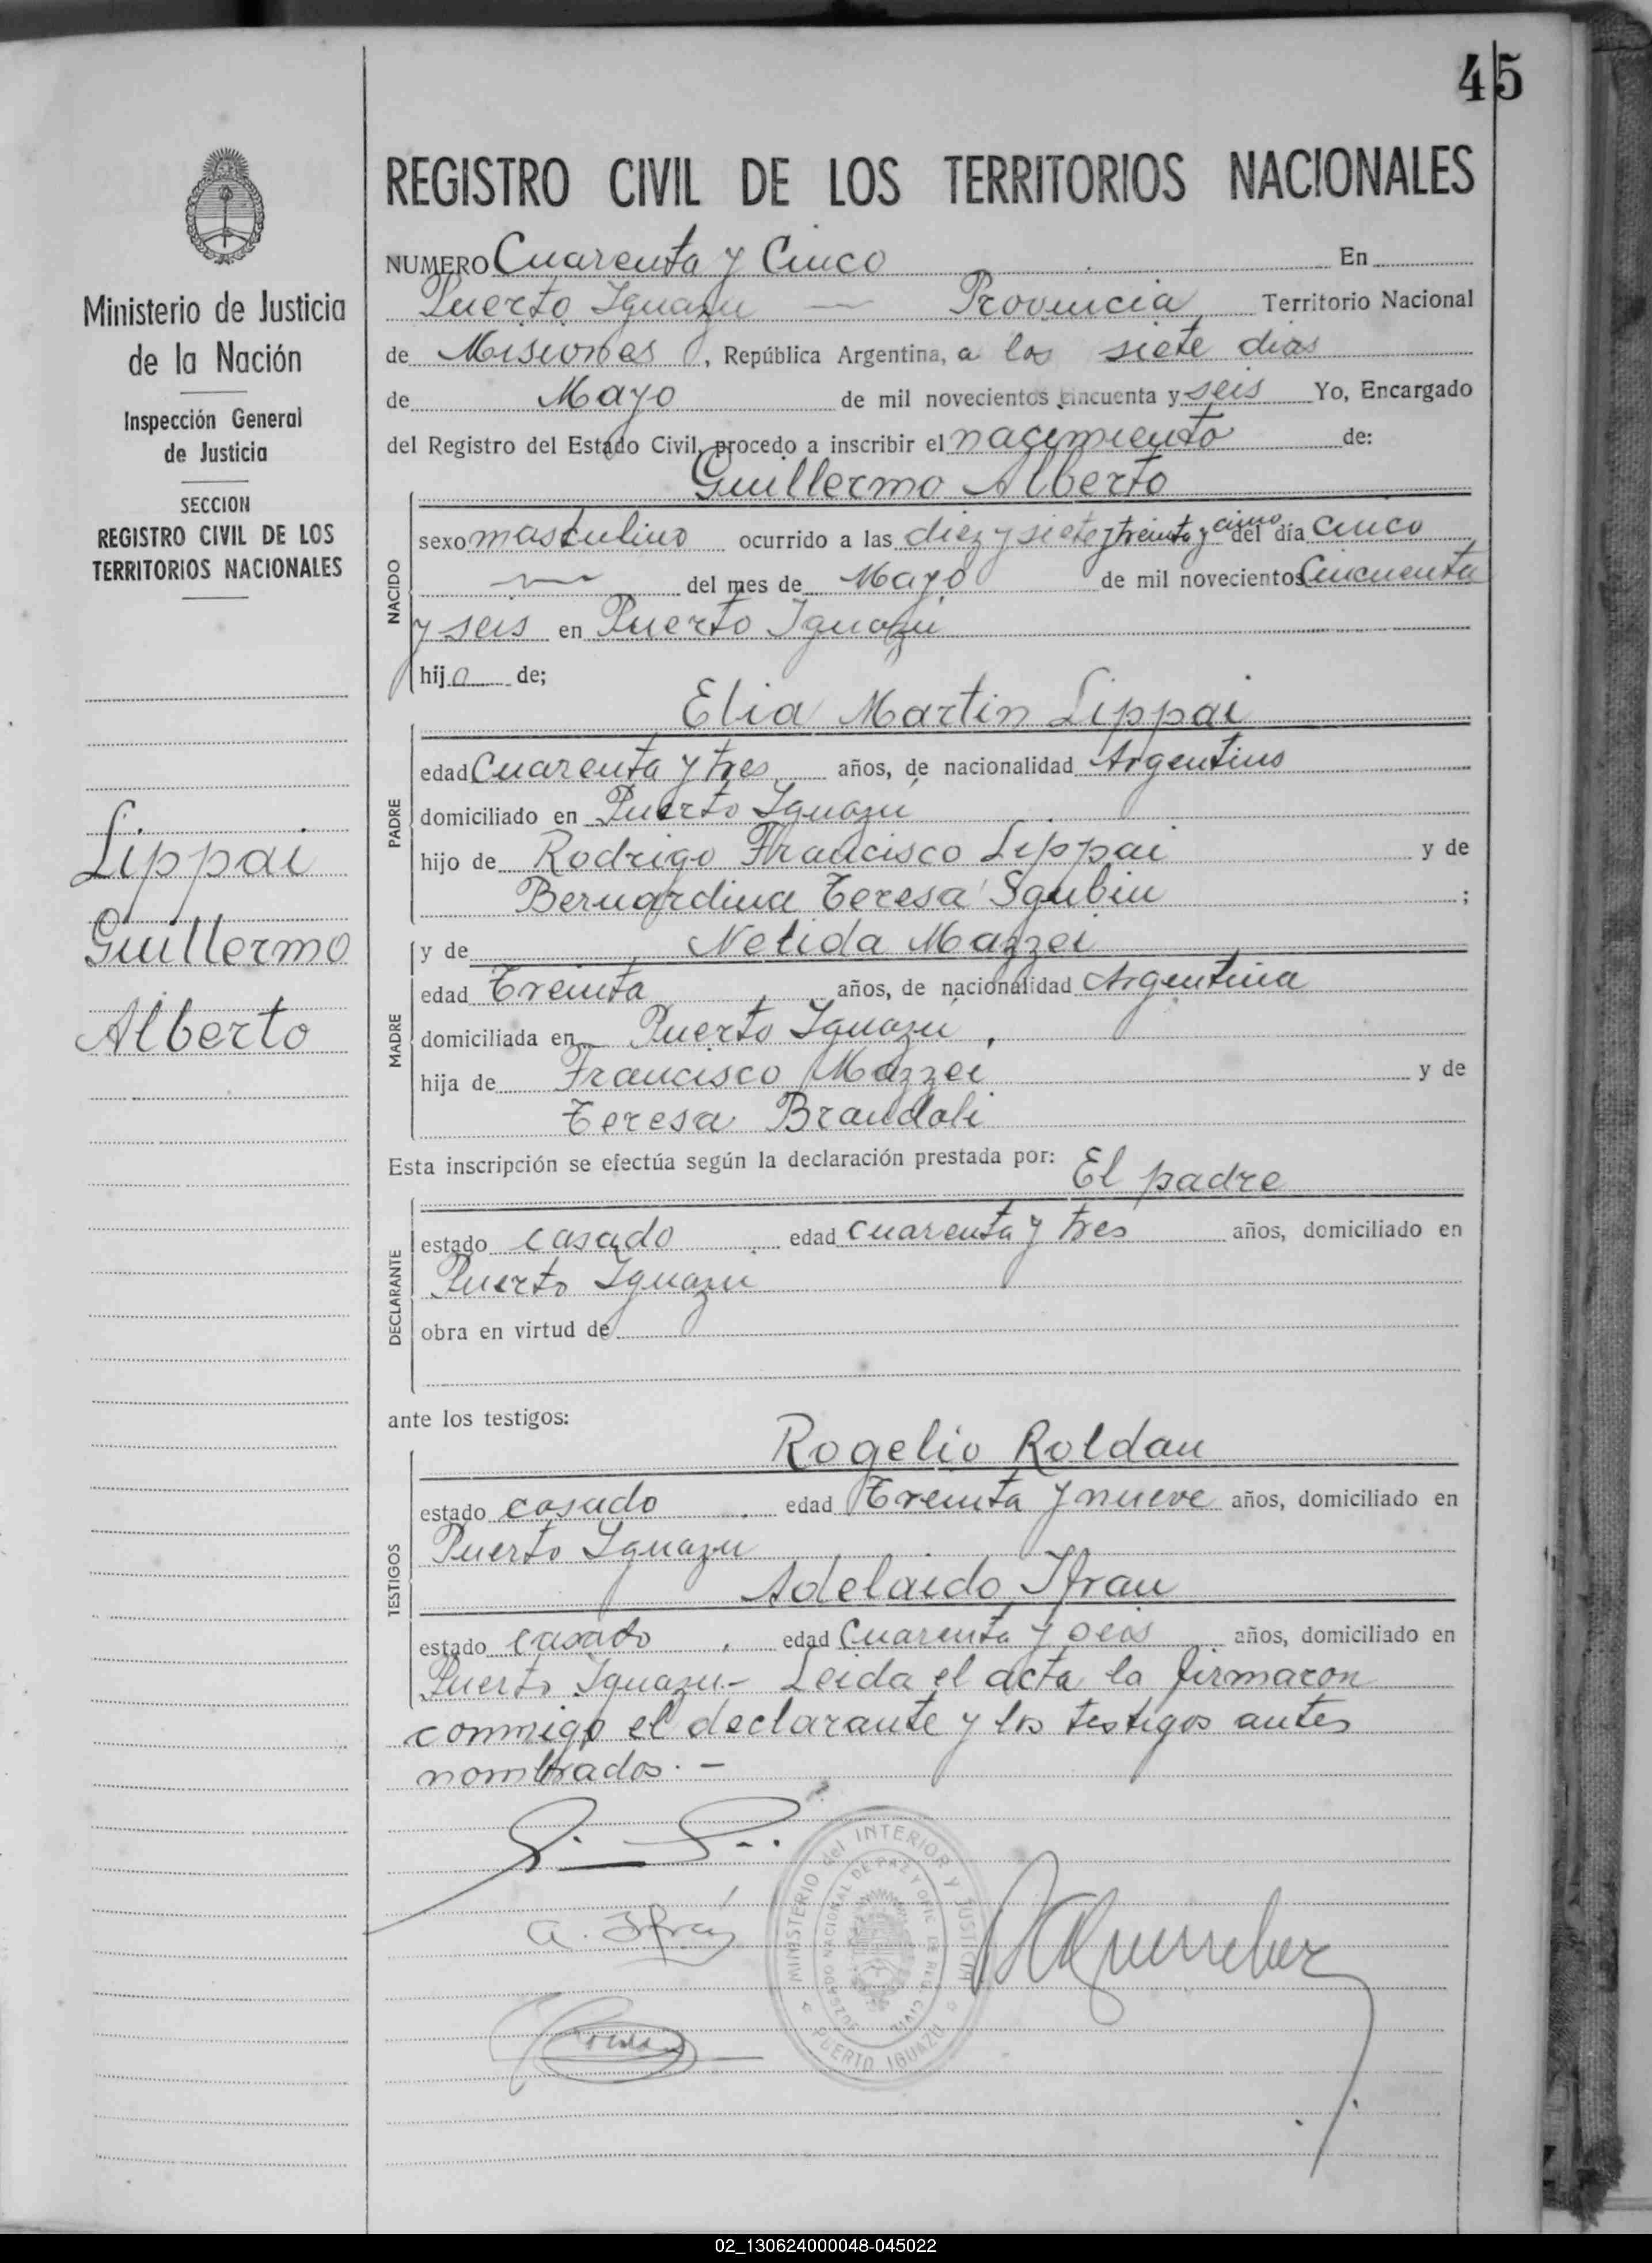 45
REGISTRO CIVIL DE LOS TERRITORIOS NACIONALES
NUMERO Cuarenta y Cinco En
Puerto Iguazu — Provincia Territorio Nacional
de Misiones, República Argentina, a los siete dias
de Mayo de mil novecientos cincuenta y seis Yo, Encargado
del Registro del Estado Civil, procedo a inscribir el nacimiento de:
Guillermo Alberto
NACIDO
sexo masculino ocurrido a las diez y siete y treinta y cinco del día cinco
del mes de Mayo de mil novecientos Cincuenta
y seis en Puerto Iguazú
hijo de;
Elia Martin Lippai
PADRE
edad Cuarenta y tres años, de nacionalidad Argentino
domiciliado en Puerto Iguazú
hijo de Rodrigo Francisco Lippai y de
Bernardina Teresa Sgubin ;
y de Nelida Mazzei
MADRE
edad Treinta años, de nacionalidad Argentina
domiciliada en Puerto Iguazú,
hija de Francisco Mazzei y de
Teresa Brandoli
Esta inscripción se efectúa según la declaración prestada por: El padre
DECLARANTE
estado casado edad cuarenta y tres años, domiciliado en
Puerto Iguazu
obra en virtud de
ante los testigos:
Rogelio Roldan
TESTIGOS
estado casado edad Treinta y nueve años, domiciliado en
Puerto Iguazu
Adelaido Ifran
estado casado edad Cuarenta y seis años, domiciliado en
Puerto Iguazu.- Leida el acta la firmaron
conmigo el declarante y los testigos antes
nombrados. -
A. Ifrán
MINISTERIO del INTERIOR Y JUSTICIA
JUZGADO NACIONAL DE PAZ Y OFIC. DE REG. CIVIL
PUERTO IGUAZU
Ministerio de Justicia
de la Nación
Inspección General
de Justicia
SECCION
REGISTRO CIVIL DE LOS
TERRITORIOS NACIONALES
Lippai
Guillermo
Alberto
02_130624000048-045022